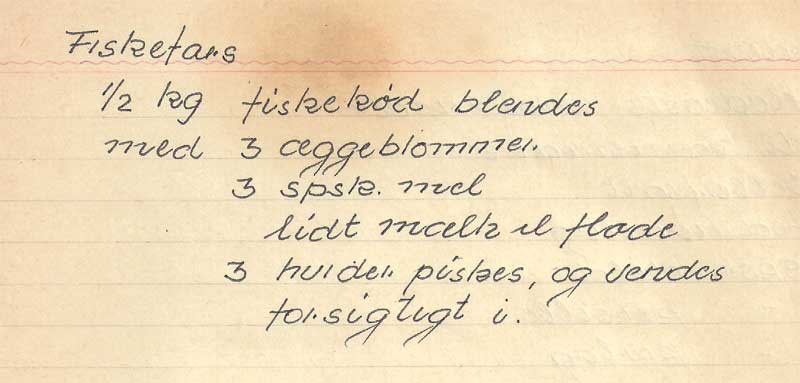 Fiskefars
1/2 kg fiskekød blendes
med 3 æggeblommer.
3 spsk. mel
lidt mælk el fløde
3 hvider piskes, og vendes
forsigtigt i.